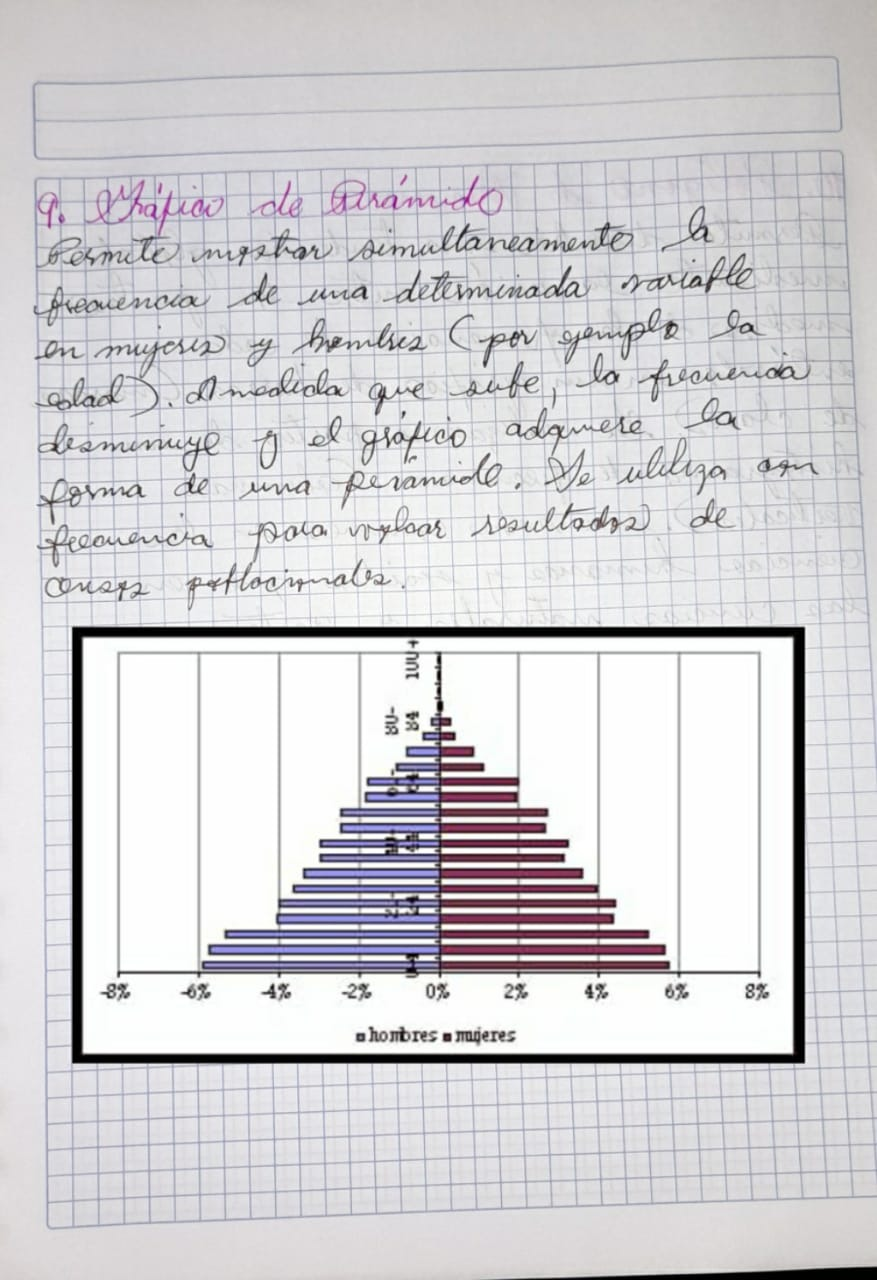 9. Gráfico de Pirámide
Permite mostrar simultaneamente la
frecuencia de una determinada variable
en mujeres y hombres (por ejemplo la
edad). A medida que sube, la frecuencia
disminuye y el gráfico adquiere la
forma de una pirámide. Se utiliza con
frecuencia para reflejar resultados de
censos poblacionales.
100+
80-84
60-64
40-44
20-24
0-4
-8% -6% -4% -2% 0% 2% 4% 6% 8%
hombres mujeres